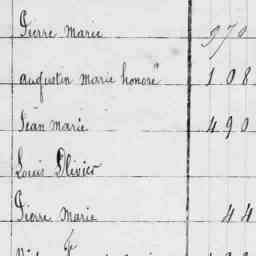 Pierre Marie 970
augustin marie honoré 108
Jean Marie 490
Louis Olivier
Pierre Marie 44